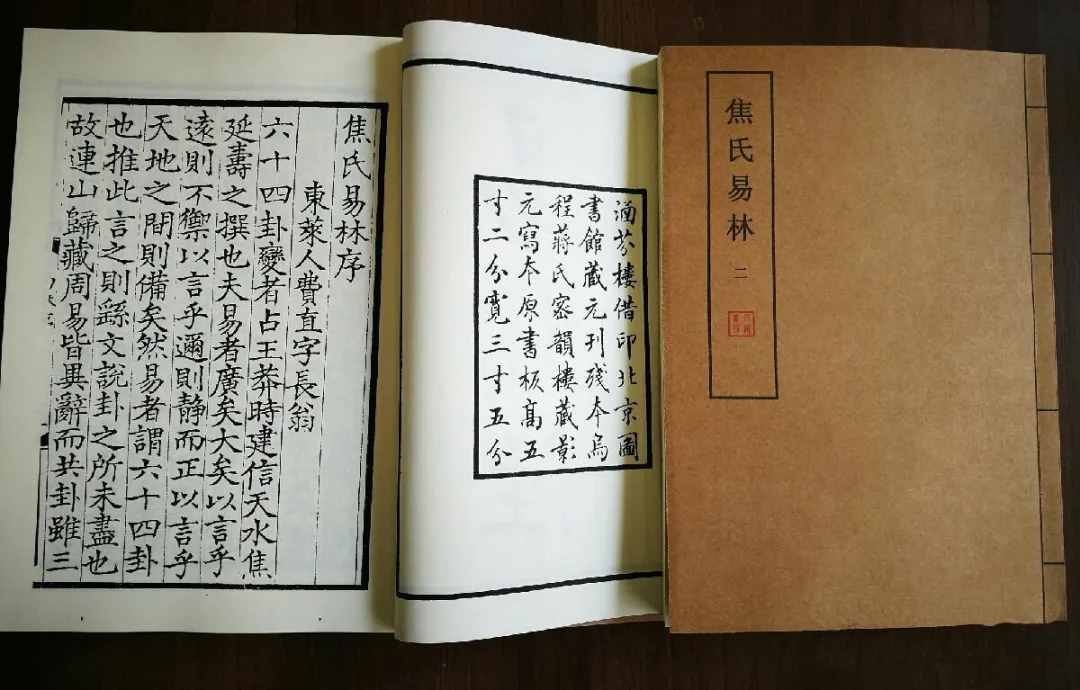 焦氏易林 二
涵芬樓借印北京圖
書館藏元刊殘本烏
程蔣氏密韻樓藏影
元寫本原書板高五
寸二分寬三寸五分
焦氏易林序
東萊人費直字長翁
六十四卦變者占王莽時建信天水焦
延壽之撰也夫易者廣矣大矣以言乎
遠則不禦以言乎邇則静而正以言乎
天地之間則備矣然易者謂六十四卦
也推此言之則繇文說卦之所未盡也
故連山歸藏周易皆異辭而共卦雖三